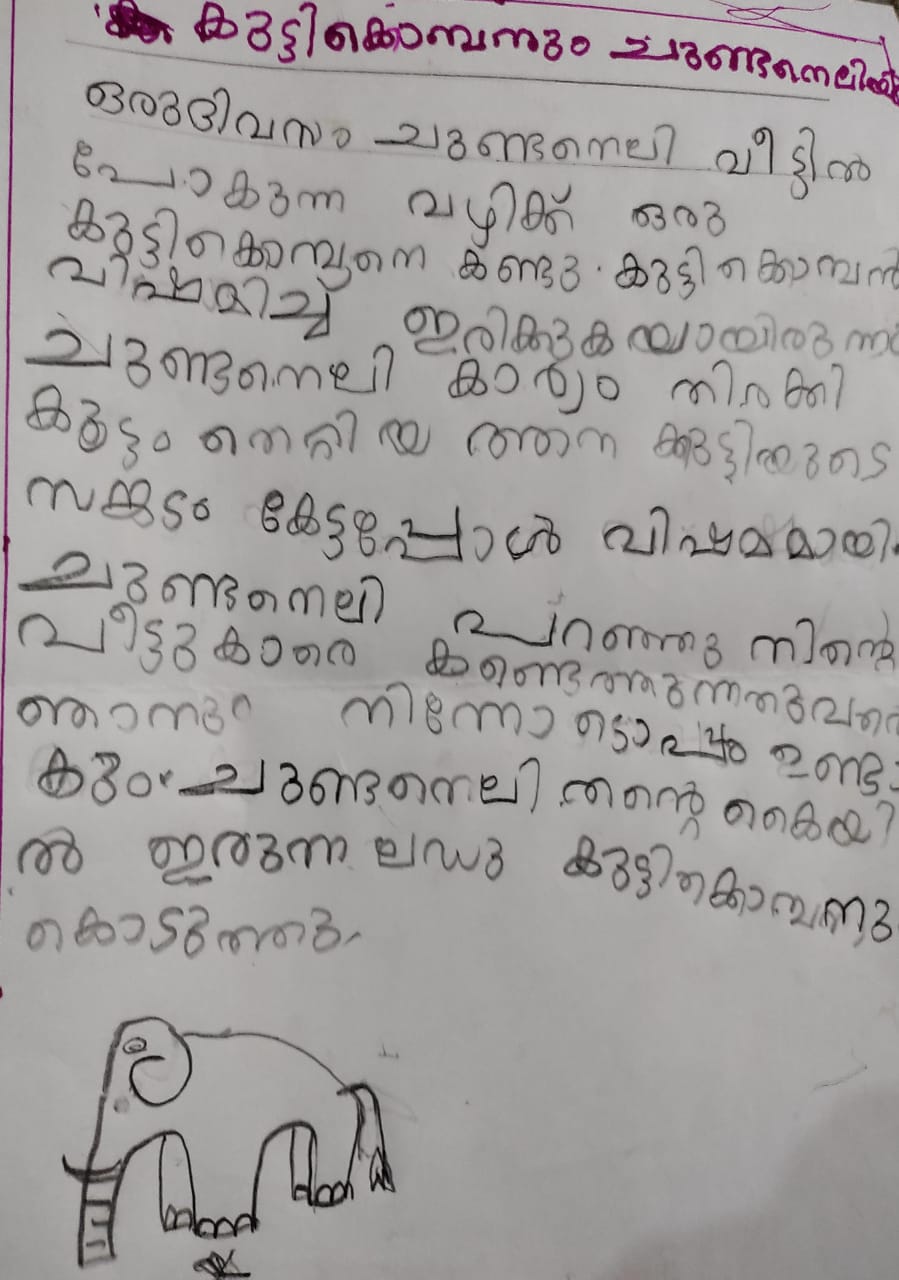 കുട്ടികൊമ്പനും ചുണ്ടനെലിയും
ഒരുദിവസം ചുണ്ടനെലി വീട്ടിൽ
പോകുന്ന വഴിക്ക് ഒരു
കുട്ടികൊമ്പനെ കണ്ടു. കുട്ടികൊമ്പൻ
വിഷമിച്ച് ഇരികുകയായിരുന്നു
ചുണ്ടനെലി കാര്യം തിരക്കി
കൂട്ടം തെറ്റിയ ആന കുട്ടിയുടെ
സങ്കടം കേട്ടപ്പോൾ വിഷമമായി.
ചുണ്ടനെലി പറഞ്ഞു നിൻ്റെ
വീട്ടുകാരെ കണ്ടെത്തുന്നതുവരെ
ഞാനും നിന്നോടൊപ്പം ഉണ്ടാ
കും. ചുണ്ടനെലി തൻ്റെ കൈയി
ൽ ഇരുന്ന ലഡു കുട്ടികൊമ്പനു
കൊടുത്തു.